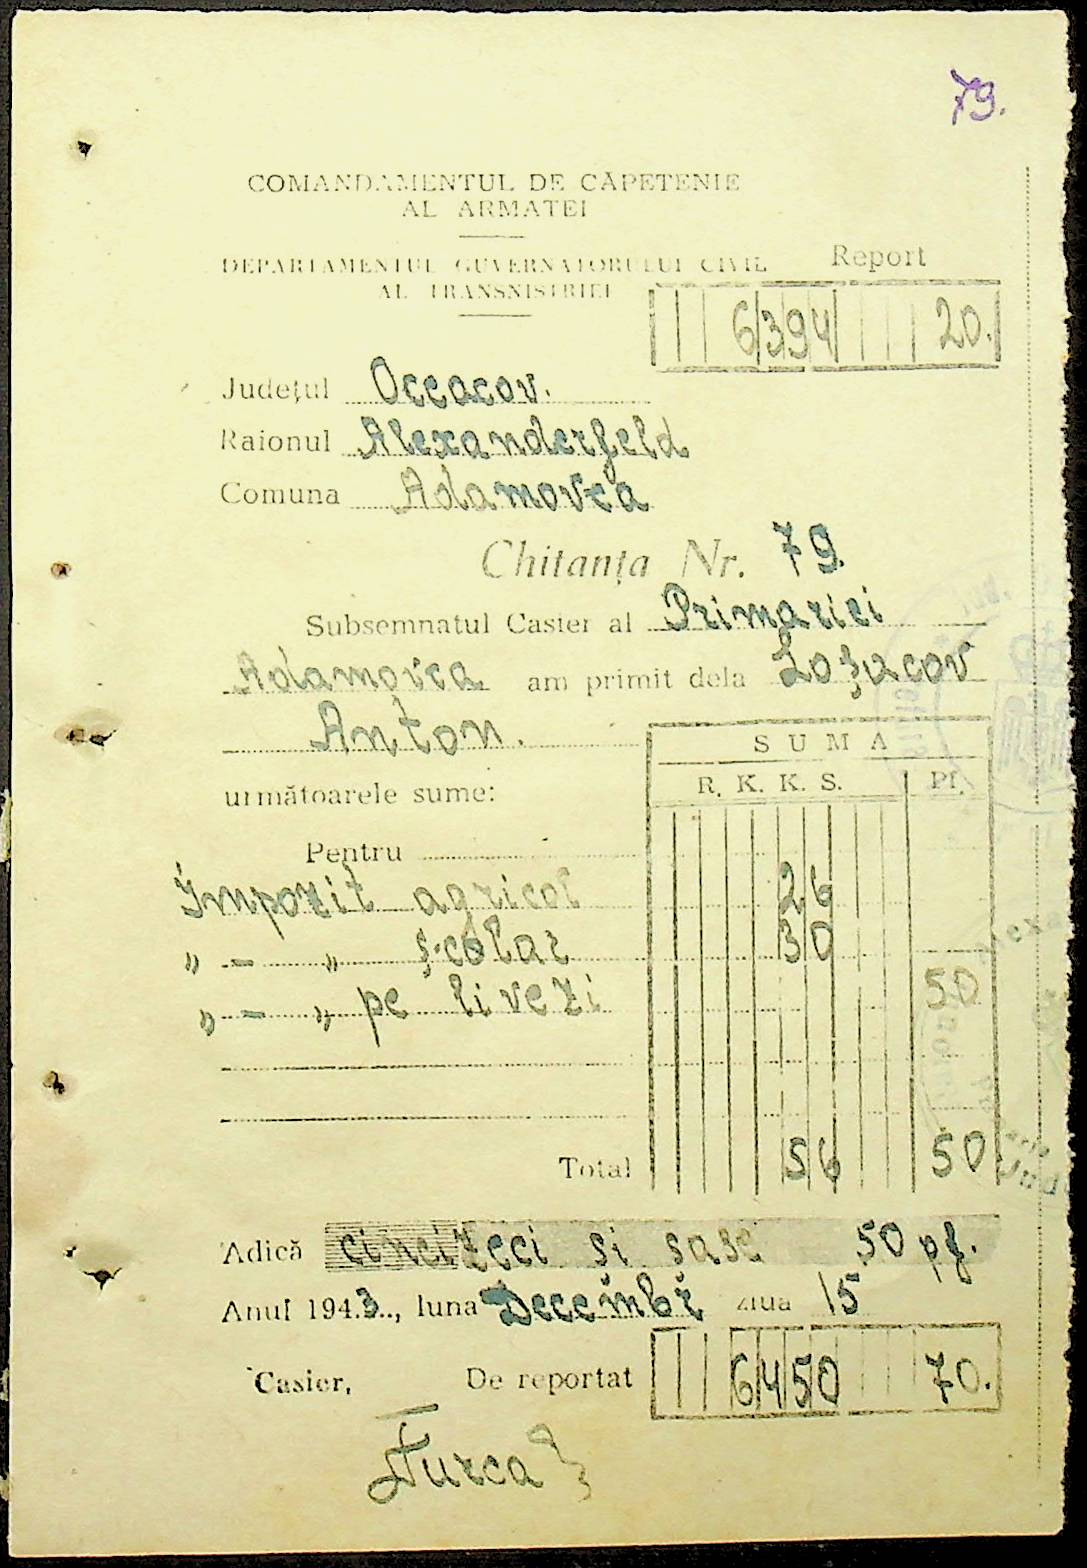 79.
COMANDAMENTUL DE CĂPETENIE
AL ARMATEI
DEPARTAMENTUL GUVERNATORULUI CIVIL
AL TRANSNISTRIEI
Report
6394 20.
Județul Occacov.
Raionul Alexanderfeld
Comuna Adamovca
Chitanța Nr. 79.
Subsemnatul Casier al Primariei
Adamovca am primit dela Loțucov
Anton.
SUMA
R. K. K. S. Pf.
următoarele sume:
Pentru
Impozit agricol 26
" - " școlar 30
" - " pe livezi 50
Total 56 50
Adică cincizeci si sase 50 pf.
Anul 1943., luna Decembr ziua 15
Casier, De reportat 6450 70.
Furca